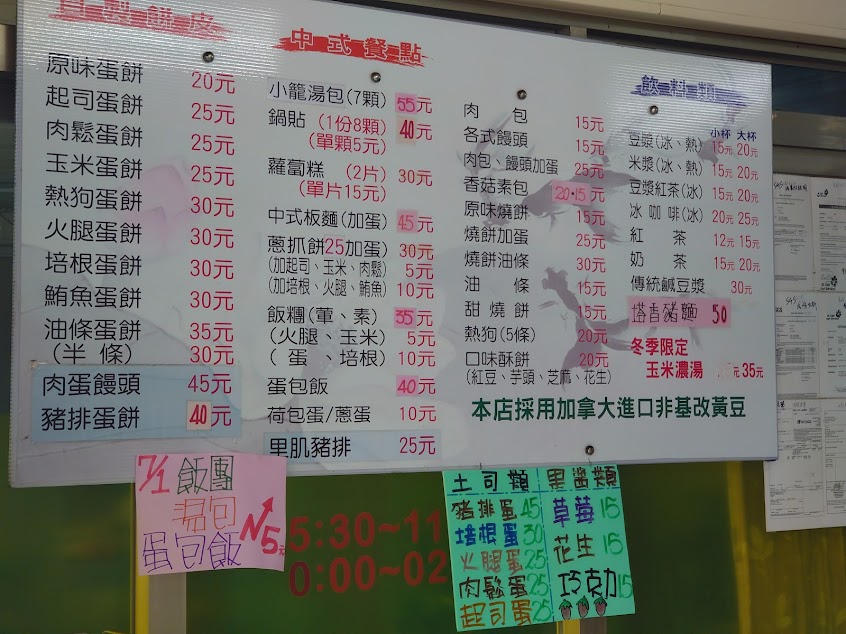 自製餅皮
原味蛋餅 20元
起司蛋餅 25元
肉鬆蛋餅 25元
玉米蛋餅 25元
熱狗蛋餅 30元
火腿蛋餅 30元
培根蛋餅 30元
鮪魚蛋餅 30元
油條蛋餅 35元
(半 條) 30元
肉蛋饅頭 45元
豬排蛋餅 40元
中式餐點
小籠湯包(7顆) 55元
鍋貼 (1份8顆) 40元
(單顆5元)
蘿蔔糕 (2片) 30元
(單片15元)
中式板麵(加蛋) 45元
蔥抓餅25加蛋) 30元
(加起司、玉米、肉鬆) 5元
(加培根、火腿、鮪魚) 10元
飯糰(葷、素) 35元
(火腿、玉米) 5元
(蛋、培根) 10元
蛋包飯 40元
荷包蛋/蔥蛋 10元
里肌豬排 25元
肉 包 15元
各式饅頭 15元
肉包、饅頭加蛋 25元
香菇素包 20·15元
原味燒餅 15元
燒餅加蛋 25元
燒餅油條 30元
油 條 15元
甜燒餅 15元
熱狗(5條) 20元
口味酥餅 20元
(紅豆、芋頭、芝麻、花生)
飲料類
小杯 大杯
豆漿(冰、熱) 15元 20元
米漿(冰、熱) 15元 20元
豆漿紅茶(冰) 15元 20元
冰咖啡(冰) 20元 25元
紅 茶 12元 15元
奶 茶 15元 20元
傳統鹹豆漿 30元
塔香豬麵 50
冬季限定
玉米濃湯 元 35元
本店採用加拿大進口非基改黃豆
7/1 飯團
湯包
蛋包飯
5元
5:30~11
0:00~02
土司類
豬排蛋 45
培根蛋 30
火腿蛋 25
肉鬆蛋 25
起司蛋 25
果醬類
草莓 15
花生 15
巧克力 15